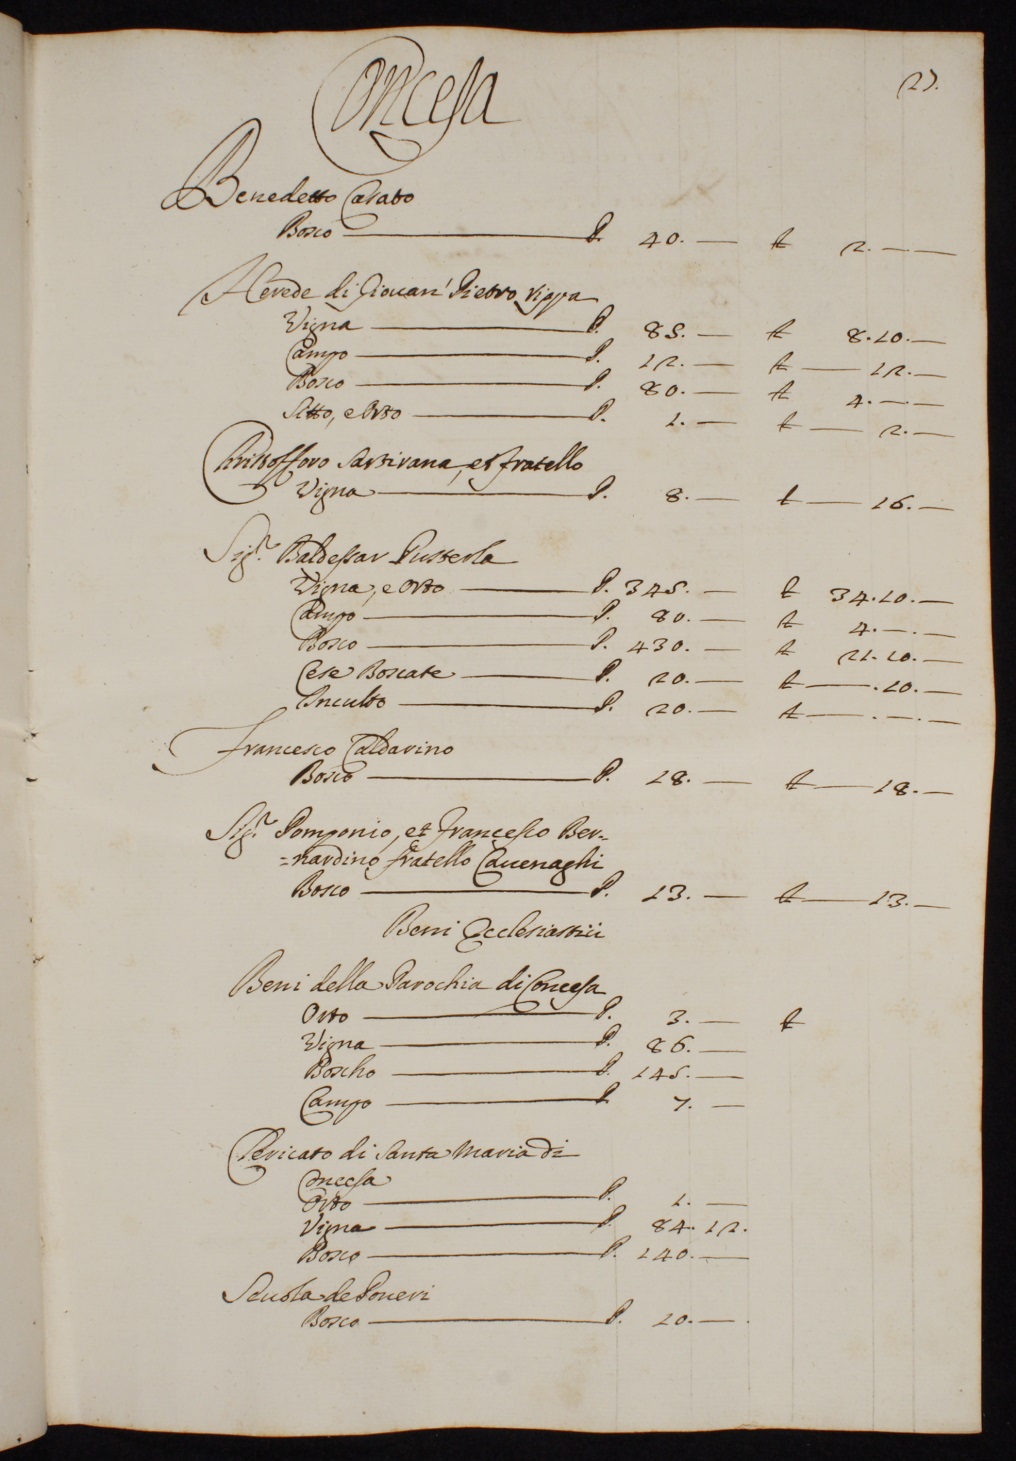 Concesa
27.
Benedetto Casato
Bosco P. 40. — £ 2. — —
Herede di Giouan' Pietro Vippa
Vigna P. 85. — £ 8. 10. —
Campo P. 12. — £ — 12. —
Bosco P. 80. — £ 4. — . —
Sitto, e Orto P. 1. — £ — 2. —
Christofforo Sartirana, et fratello
Vigna P. 8. — £ — 16. —
Sigr. Baldessar Pusterla
Vigna, e Orto P. 345. — £ 34. 10. —
Campo P. 80. — £ 4. — . —
Bosco P. 430. — £ 21. 10. —
Cese Boscate P. 20. — £ — . 10. —
Inculto P. 20. — £ — . — . —
Francesco Caldarino
Bosco P. 18. — £ — 18. —
Sigr. Pomponio, et Francesco Ber=
=nardino fratello Cauenaghi
Bosco P. 13. — £ — 13. —
Beni Ecclesiastici
Beni della Parochia di Concesa
Orto P. 3. — £
Vigna P. 86. —
Boscho P. 145. —
Campo P. 7. —
Clericato di Santa Maria di
Concesa
Orto P. 1. —
Vigna P. 84. 12.
Bosco P. 140. —
Scuola de Poueri
Bosco P. 10. —